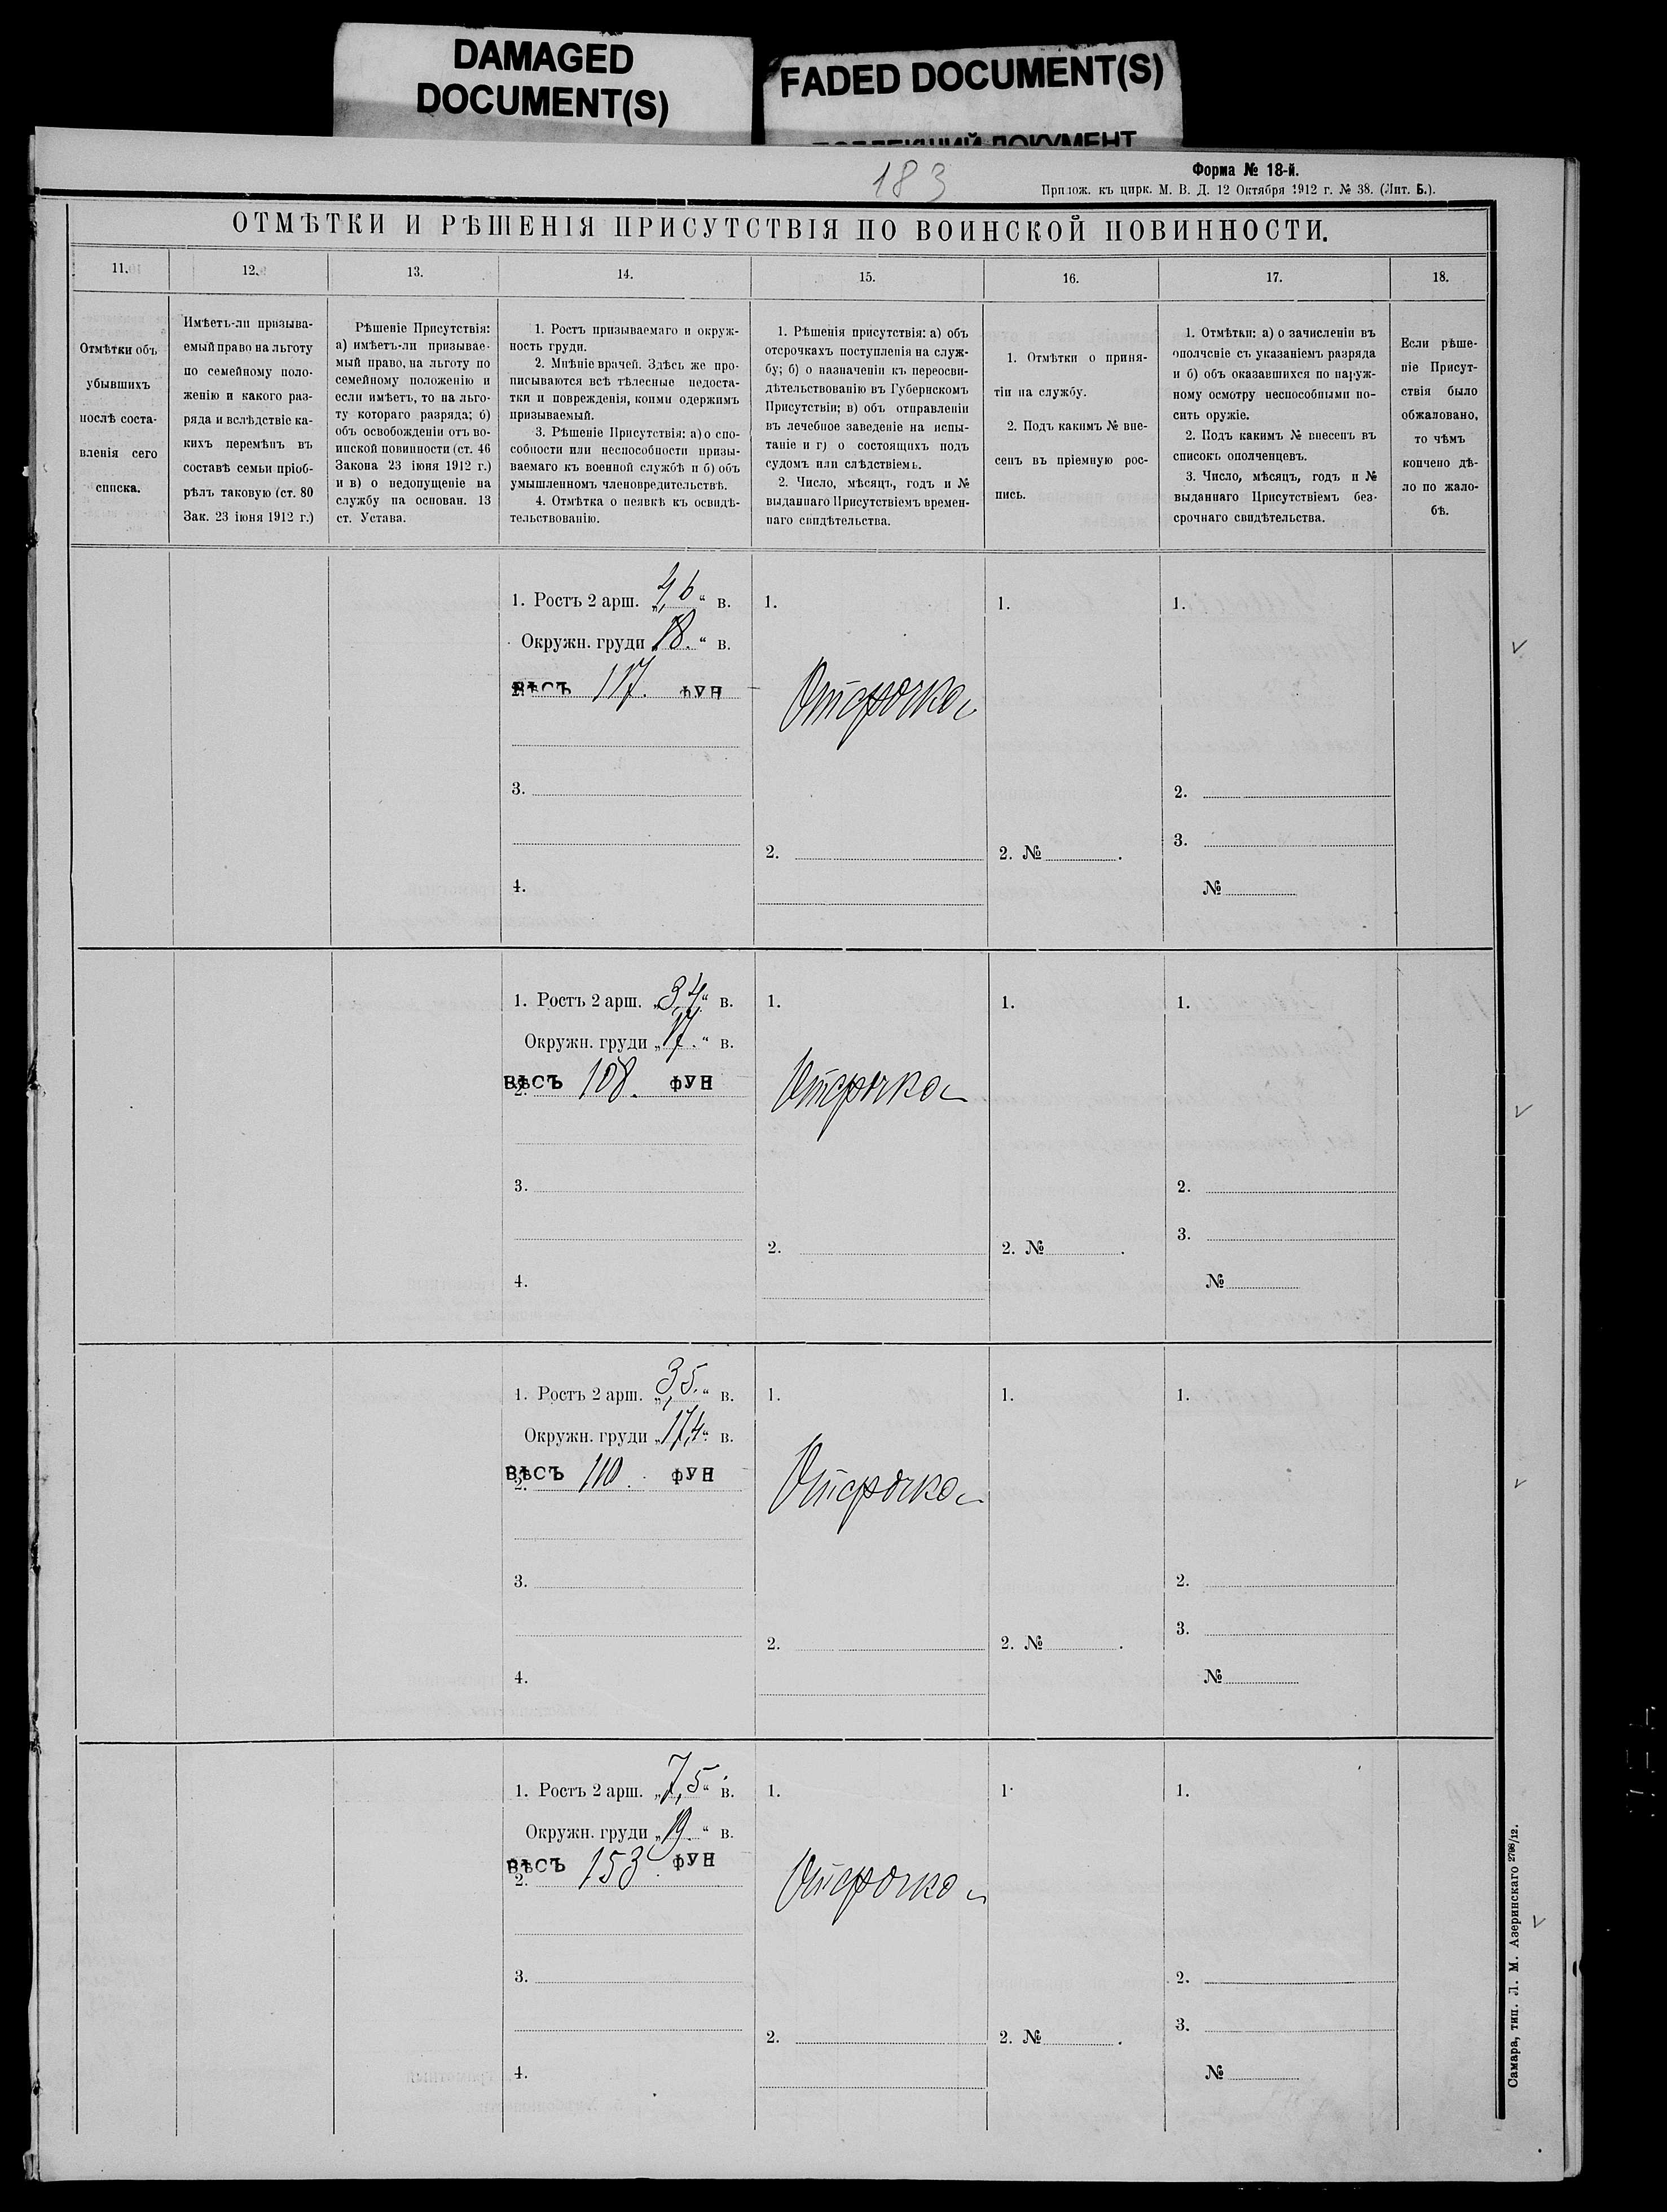 DAMAGED
DOCUMENT(S)
FADED DOCUMENT(S)
183
Форма № 18-й.
Прилож. къ цирк. М. В. Д. 12 Октября 1912 г. № 38. (Лит. Б.).
ОТМѢТКИ И РѢШЕНІЯ ПРИСУТСТВІЯ ПО ВОИНСКОЙ ПОВИННОСТИ.
11.
12.
13.
14.
15.
16.
17.
18.
Отмѣтки объ
убывшихъ
послѣ соста-
вленія сего
списка.
Имѣетъ-ли призыва-
емый право на льготу
по семейному поло-
женію и какого раз-
ряда и вслѣдствіе ка-
кихъ перемѣнъ въ
составѣ семьи пріоб-
рѣлъ таковую (ст. 80
Зак. 23 іюня 1912 г.)
Рѣшеніе Присутствія:
а) имѣетъ-ли призывае-
мый право, на льготу по
семейному положенію и
если имѣетъ, то на льго-
ту котораго разряда; б)
объ освобожденіи отъ во-
инской повинности (ст. 46
Закона 23 іюня 1912 г.)
и в) о недопущеніе на
службу на основан. 13
ст. Устава.
1. Ростъ призываемаго и окруж-
ность груди.
2. Мнѣніе врачей. Здѣсь же про-
писываются всѣ тѣлесные недоста-
тки и поврежденія, коими одержимъ
призываемый.
3. Рѣшеніе Присутствія: а) о спо-
собности или неспособности призы-
ваемаго къ военной службѣ и б) объ
умышленномъ членовредительствѣ.
4. Отмѣтка о неявкѣ къ освидѣ-
тельствованію.
1. Рѣшенія присутствія: а) объ
отсрочкахъ поступленія на служ-
бу; б) о назначеніи къ переосви-
дѣтельствованію въ Губернскомъ
Присутствіи; в) объ отправленіи
въ лечебное заведеніе на испы-
таніе и г) о состоящихъ подъ
судомъ или слѣдствіемъ.
2. Число, мѣсяцъ, годъ и №
выданнаго Присутствіемъ времен-
наго свидѣтельства.
1. Отмѣтки о приня-
тіи на службу.
2. Подъ какимъ № вне-
сенъ въ пріемную рос-
пись.
1. Отмѣтки: а) о зачисленіи въ
ополченіе съ указаніемъ разряда
и б) объ оказавшихся по наруж-
ному осмотру неспособными но-
сить оружіе.
2. Подъ какимъ № внесенъ въ
списокъ ополченцевъ.
3. Число, мѣсяцъ, годъ и №
выданнаго Присутствіемъ без-
срочнаго свидѣтельства.
Если рѣше-
ніе Присут-
ствія было
обжаловано,
то чѣмъ
кончено дѣ-
ло по жало-
бѣ.
1. Ростъ 2 арш. „4,6“ в.
Окружн. груди 18. “ в.
ВѢСЪ 117. ФУН
3.
4.
1.
Отсрочка
2.
1.
2. №
1.
2.
3.
№
1. Ростъ 2 арш. „3,4“ в.
Окружн. груди „17.“ в.
2. ВѢСЪ 108. ФУН
3.
4.
1.
Отсрочка
2.
1.
2. №
1.
2.
3.
№
1. Ростъ 2 арш. „3,5.“ в.
Окружн. груди „17,4“ в.
2. ВѢСЪ 110. ФУН
3.
4.
1.
Отсрочка
2.
1.
2. №
1.
2.
3.
№
1. Ростъ 2 арш. „7,5“ в.
Окружн. груди „19.“ в.
2. ВѢСЪ 153 ФУН
3.
4.
1.
Отсрочка
2.
1.
2. №
1.
2.
3.
№
Самара, тип. Л. М. Азеринскаго